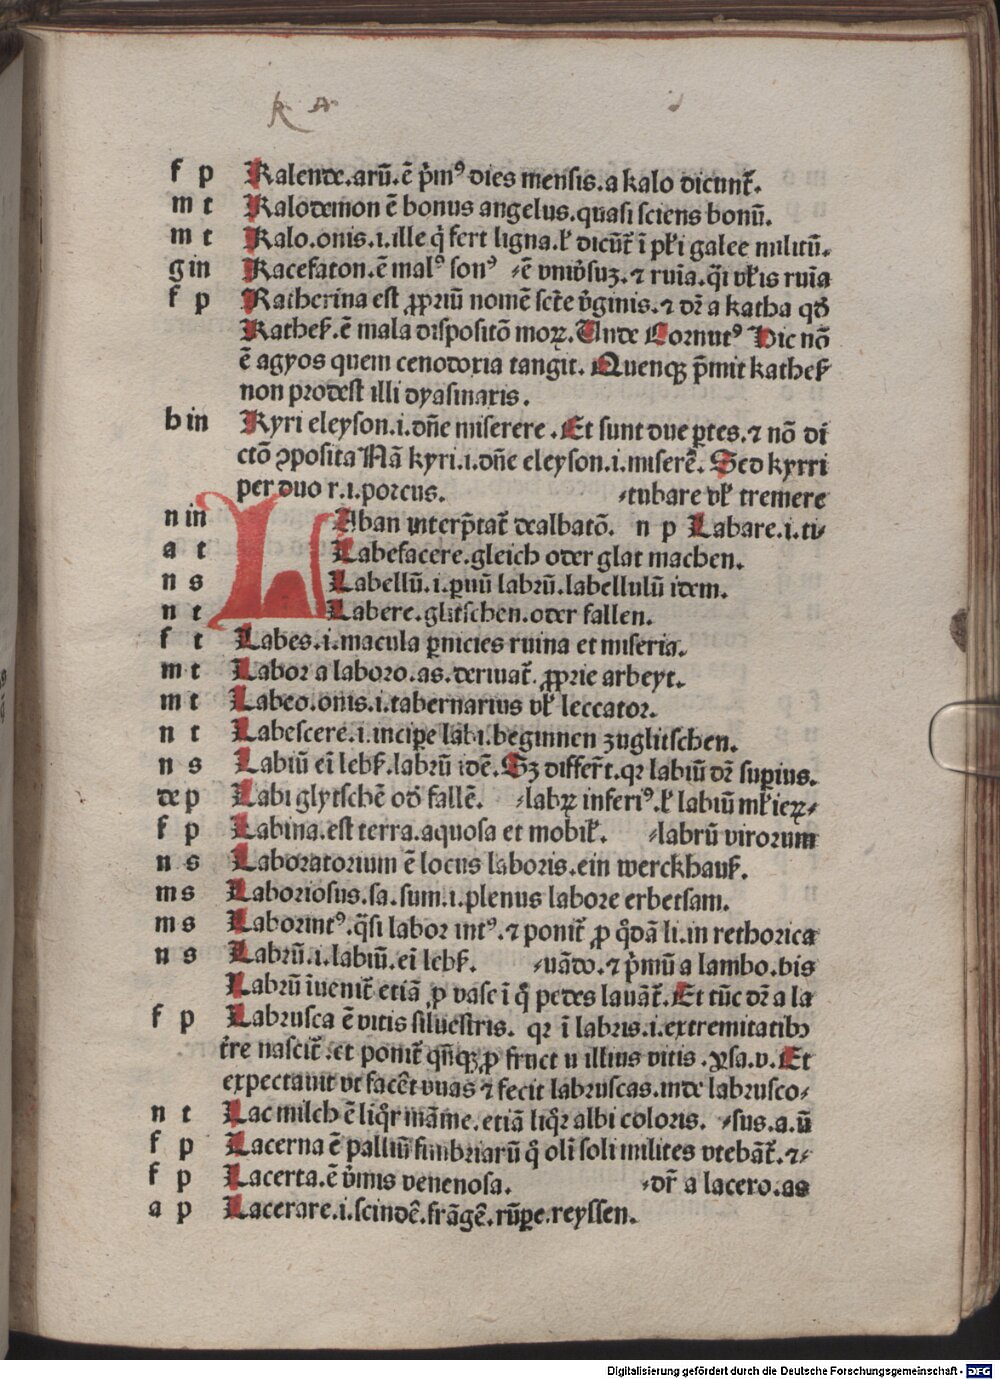 k A
f p Kalende.arū.ē p̄mꝰ dies mensis.a kalo dicunt᷑.
m t Kalodemon ē bonus angelus.quasi sciens bonū.
m t Kalo.onis.i.ille q̇ fert ligna.ł dicūt᷑ ī płi galee militū.
g in Kacefaton.ē malꝰ sonꝰ
⸗ē vniv̓suꝫ.⁊ ruīa.q̄i vłis ruīa
f p Katherina est ꝓpriū nomē sct̄e v̓ginis.⁊ dr̄ a katha qđ
Katheẜ.ē mala dispositō moꝝ.Unde Cornutꝰ Hic nō
ē agyos quem cenodoxia tangit. Quenqꝫ p̄mit katheẜ
non prodest illi dyasinaxis.
b in Kyri eleyson.i.dn̄e miserere .Et sunt due ꝑtes.⁊ nō di
ctō ꝯposita Nā kyri.i.dn̄e eleyson.i.miserē. Sed kyrri
per duo r.i.porcus.
⸗tubare vł tremere
n in LAban interp̄tat᷑ dealbatō. n p Labare.i.ti⸗
a t Labefacere.gleich oder glat machen.
n s Labellū.i.ꝑuū labrū.labellulū idem.
n t Labere.glitschen.oder fallen.
f t Labes.i.macula ꝑnicies ruina et miseria.
m t Labor a laboro.as.deriuat᷑. ꝓprie arbeyt.
m t Labeo.onis.i.tabernarius vł leccator.
n t Labescere.i.incipe labi.beginnen zuglitschen.
n s Labiū ei lebẜ.labrū idē.Sꝫ differt᷑.qꝛ labiū dr̄ suꝑius.
de p Labi glytschē ođ fallē.
⸗labꝝ inferiꝰ.ł labiū młieꝝ⸗
f p Labina.est terra.aquosa et mobił.
⸗labrū virorum
n s Laboratorium ē locus laboris.ein werckhauẜ.
m s Laboriosus.sa.sum.i.plenus labore erbetsam.
m s Laborintꝰ.q̄si labor intꝰ.⁊ ponit᷑ ꝓ q̊dā li.in rethorica
n s Labrū.i.labiū.ei lebẜ.
⸗uādo.⁊ p̄mū a lambo.bis
Labrū īuenit᷑ etiā ꝓ vase ī q̊ pedes lauāt᷑.Et tūc dr̄ a la
f p Labrusca ē vitis siluestris. qꝛ ī labris.i.extremitatibꝫ
t̄re nascit᷑.et ponit᷑ qn̄qꝫ ꝓ fruct u illius vitis .ysa.v.Et
expectauit vt facēt vuas ⁊ fecit labruscas.inde labrusco⸗
n t Lac milch ē liq̊r māme.etiā liq̊r albi coloris.
⸗sus.a.ū
f p Lacerna ē palliū fimbriarū q̊ oli̅ soli milites vtebāt᷑.⁊⸗
f p Lacerta.ē v̓mis venenosa.
⸗dr̄ a lacero.as
a p Lacerare.i.scindē.frāgē.rūꝑe.reyssen.
Digitalisierung gefördert durch die Deutsche Forschungsgemeinschaft - DFG